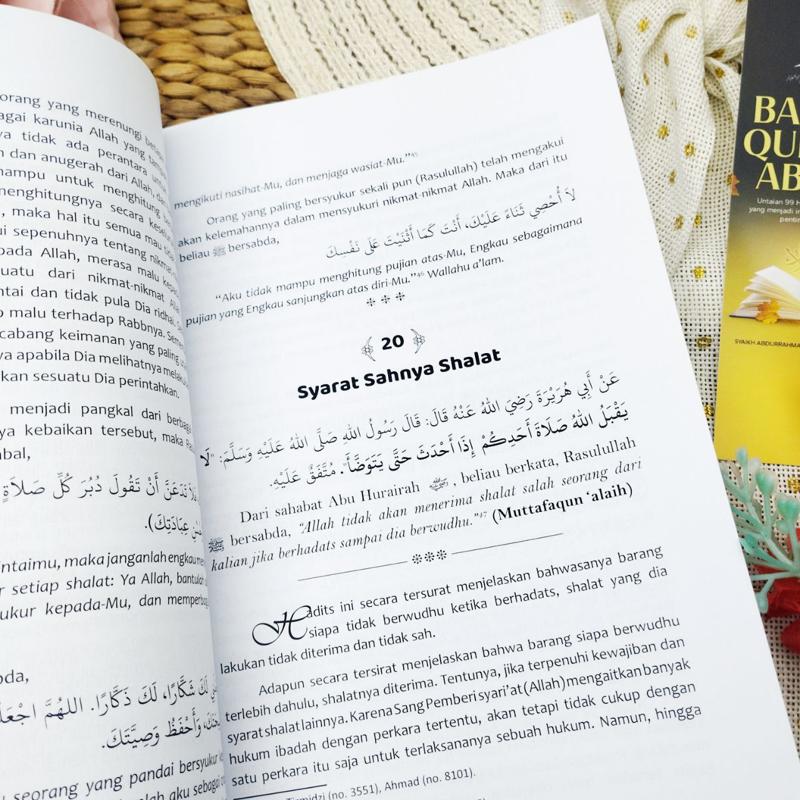 orang yang merenungi
agai karunia Allah yang
ya tidak ada perantara
n dan anugerah dari Allah, dan
mampu untuk menghitung
menghitungnya secara
, maka hal itu semua
ui sepenuhnya tentang nikmat
pada Allah, merasa malu
uatu dari nikmat-nikmat
ntai dan tidak pula Dia ridhai
p malu terhadap Rabbnya.
cabang keimanan yang paling
ya apabila Dia melihatnya
kan sesuatu Dia perintahkan.
menjadi pangkal dari
ya kebaikan tersebut, maka
bal,
لَا تَدَعَنَّ أَنْ تَقُولَ دُبُرَ كُلِّ صَلَاةٍ
عِبَادَتِكَ).
ntaimu, maka janganlah engkau
r setiap shalat: Ya Allah,
ukur kepada-Mu, dan
oda,
لَكَ شَكَّارًا، لَكَ ذَكَّارًا. اللهُمَّ اجْعَلْ
وَأَحْفَظُ وَصِيَّتَكَ.
seorang yang pandai bersyukur
lah aku sebagai
mengikuti nasihat-Mu, dan menjaga wasiat-Mu."⁴⁵
Orang yang paling bersyukur sekali pun (Rasulullah) telah mengakui
akan kelemahannya dalam mensyukuri nikmat-nikmat Allah. Maka dari itu
beliau ﷺ bersabda,
لَا أُحْصِي ثَنَاءً عَلَيْكَ، أَنْتَ كَمَا أَثْنَيْتَ عَلَى نَفْسِكَ
"Aku tidak mampu menghitung pujian atas-Mu, Engkau sebagaimana
pujian yang Engkau sanjungkan atas diri-Mu."⁴⁶ Wallahu a'lam.
20
Syarat Sahnya Shalat
عَنْ أَبِي هُرَيْرَةَ رَضِيَ اللهُ عَنْهُ قَالَ: قَالَ رَسُولُ اللهِ صَلَّى اللهُ عَلَيْهِ وَسَلَّمَ: "لَا
يَقْبَلُ اللهُ صَلَاةَ أَحَدِكُمْ إِذَا أَحْدَثَ حَتَّى يَتَوَضَّأَ". مُتَّفَقٌ عَلَيْهِ.
Dari sahabat Abu Hurairah, beliau berkata, Rasulullah
ﷺ bersabda, "Allah tidak akan menerima shalat salah seorang dari
kalian jika berhadats sampai dia berwudhu."⁴⁷ (Muttafaqun 'alaih)
Hadits ini secara tersurat menjelaskan bahwasanya barang
siapa tidak berwudhu ketika berhadats, shalat yang dia
lakukan tidak diterima dan tidak sah.
Adapun secara tersirat menjelaskan bahwa barang siapa berwudhu
terlebih dahulu, shalatnya diterima. Tentunya, jika terpenuhi kewajiban dan
syarat shalat lainnya. Karena Sang Pemberi syari'at (Allah) mengaitkan banyak
hukum ibadah dengan perkara tertentu, akan tetapi tidak cukup dengan
satu perkara itu saja untuk terlaksananya sebuah hukum. Namun, hingga
(no. 3551), Ahmad (no. 8101).
BA
QU
AB
Untaian 99 H
yang menjadi in
SYAIKH ABDURRAHMA